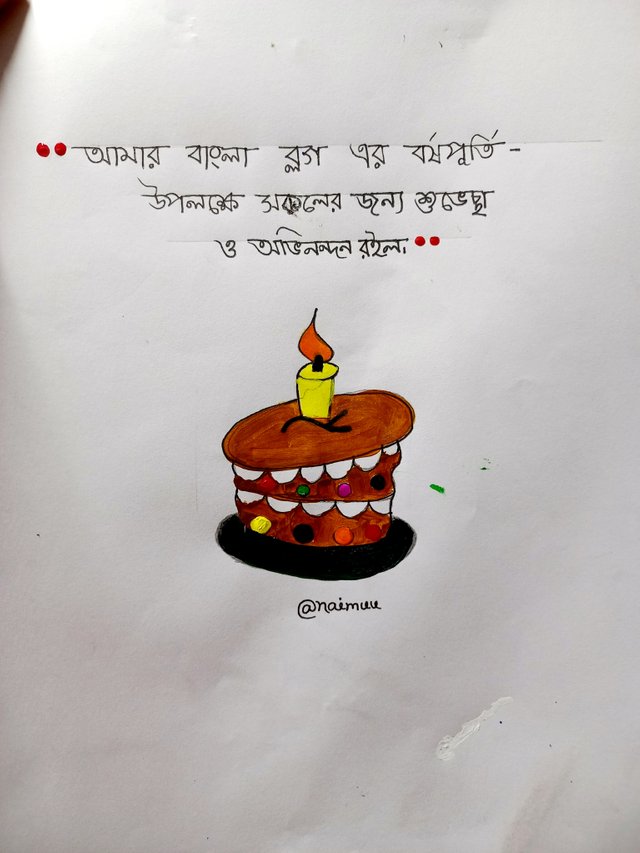 আমার বাংলা ব্লগ এর বর্ষপূর্তি -
উপলক্ষে সকলের জন্য শুভেচ্ছা
ও অভিনন্দন রইল।
@naimuu